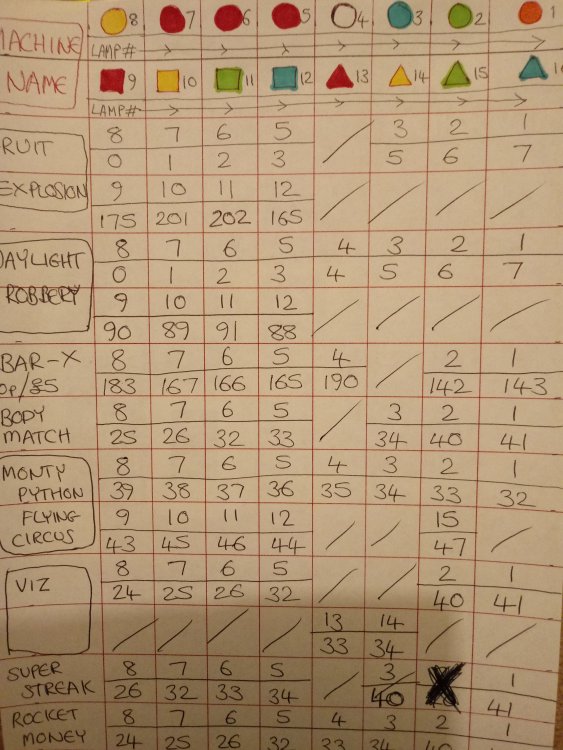 8 7 6 5 4 3 2 1
MACHINE LAMP#
NAME 9 10 11 12 13 14 15 16
LAMP#
FRUIT 8 7 6 5 3 2 1
0 1 2 3 5 6 7
EXPLOSION 9 10 11 12
175 201 202 165
DAYLIGHT 8 7 6 5 4 3 2 1
0 1 2 3 4 5 6 7
ROBBERY 9 10 11 12
90 89 91 88
BAR-X 8 7 6 5 4 2 1
0p/£5 183 167 166 165 190 142 143
BODY 8 7 6 5 3 2 1
MATCH 25 26 32 33 34 40 41
MONTY 8 7 6 5 4 3 2 1
PYTHON 39 38 37 36 35 34 33 32
FLYING 9 10 11 12 15
CIRCUS 43 45 46 44 47
VIZ 8 7 6 5 2 1
24 25 26 32 40 41
13 14
33 34
SUPER 8 7 6 5 3 1
STREAK 26 32 33 34 40 41
ROCKET 8 7 6 5 4 3 2 1
MONEY 24 25 26 32 33 34 40